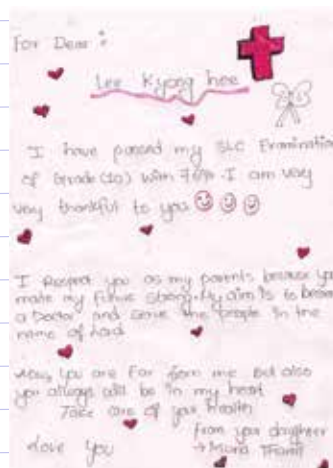 For Dear :
Lee Kyong hee
I have passed my SLC Examination
of Grade (10) with 76%. I am very
very thankful to you
I Respect you as my parents because you
make my future strong. My aim is to become
a Doctor and serve the people in the
name of Lord
Now, you are far from me but also
you always will be in my heart
Take care of your Health
from your daughter
Love you → Muna